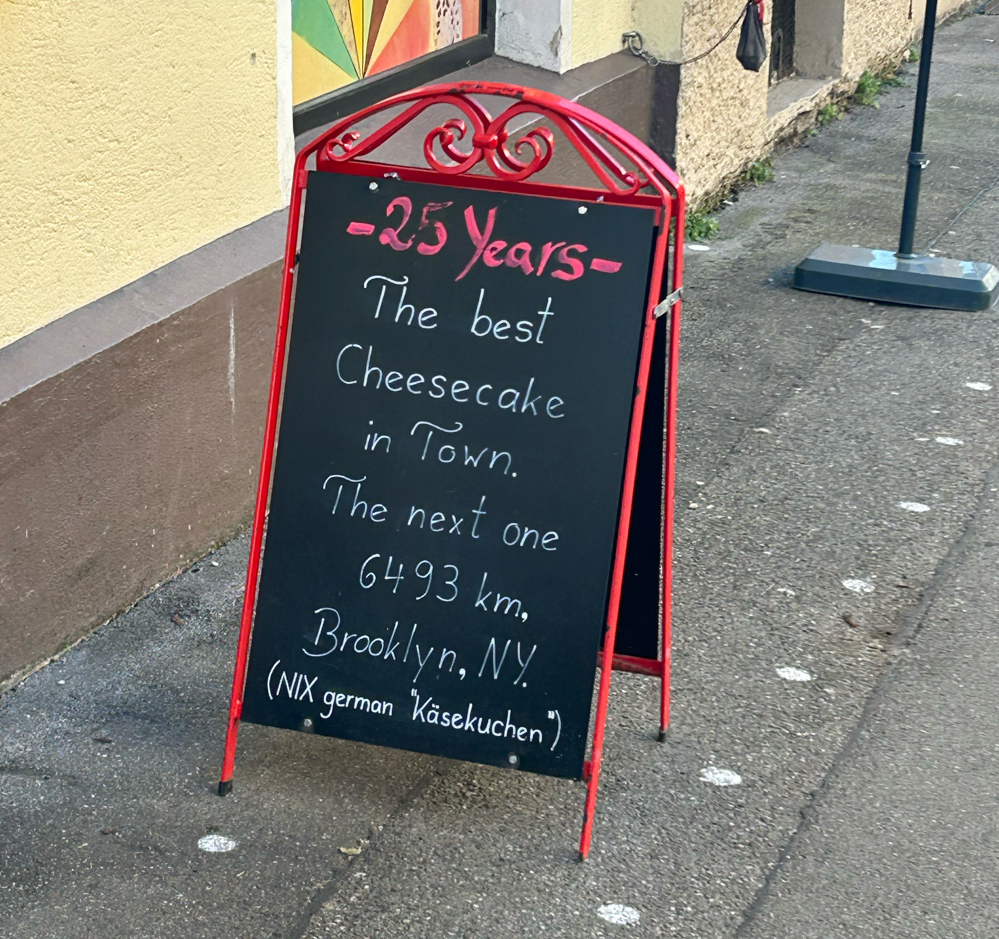 -25 Years-
The best
Cheesecake
in Town.
The next one
6493 km,
Brooklyn, NY.
(NIX german "Käsekuchen")